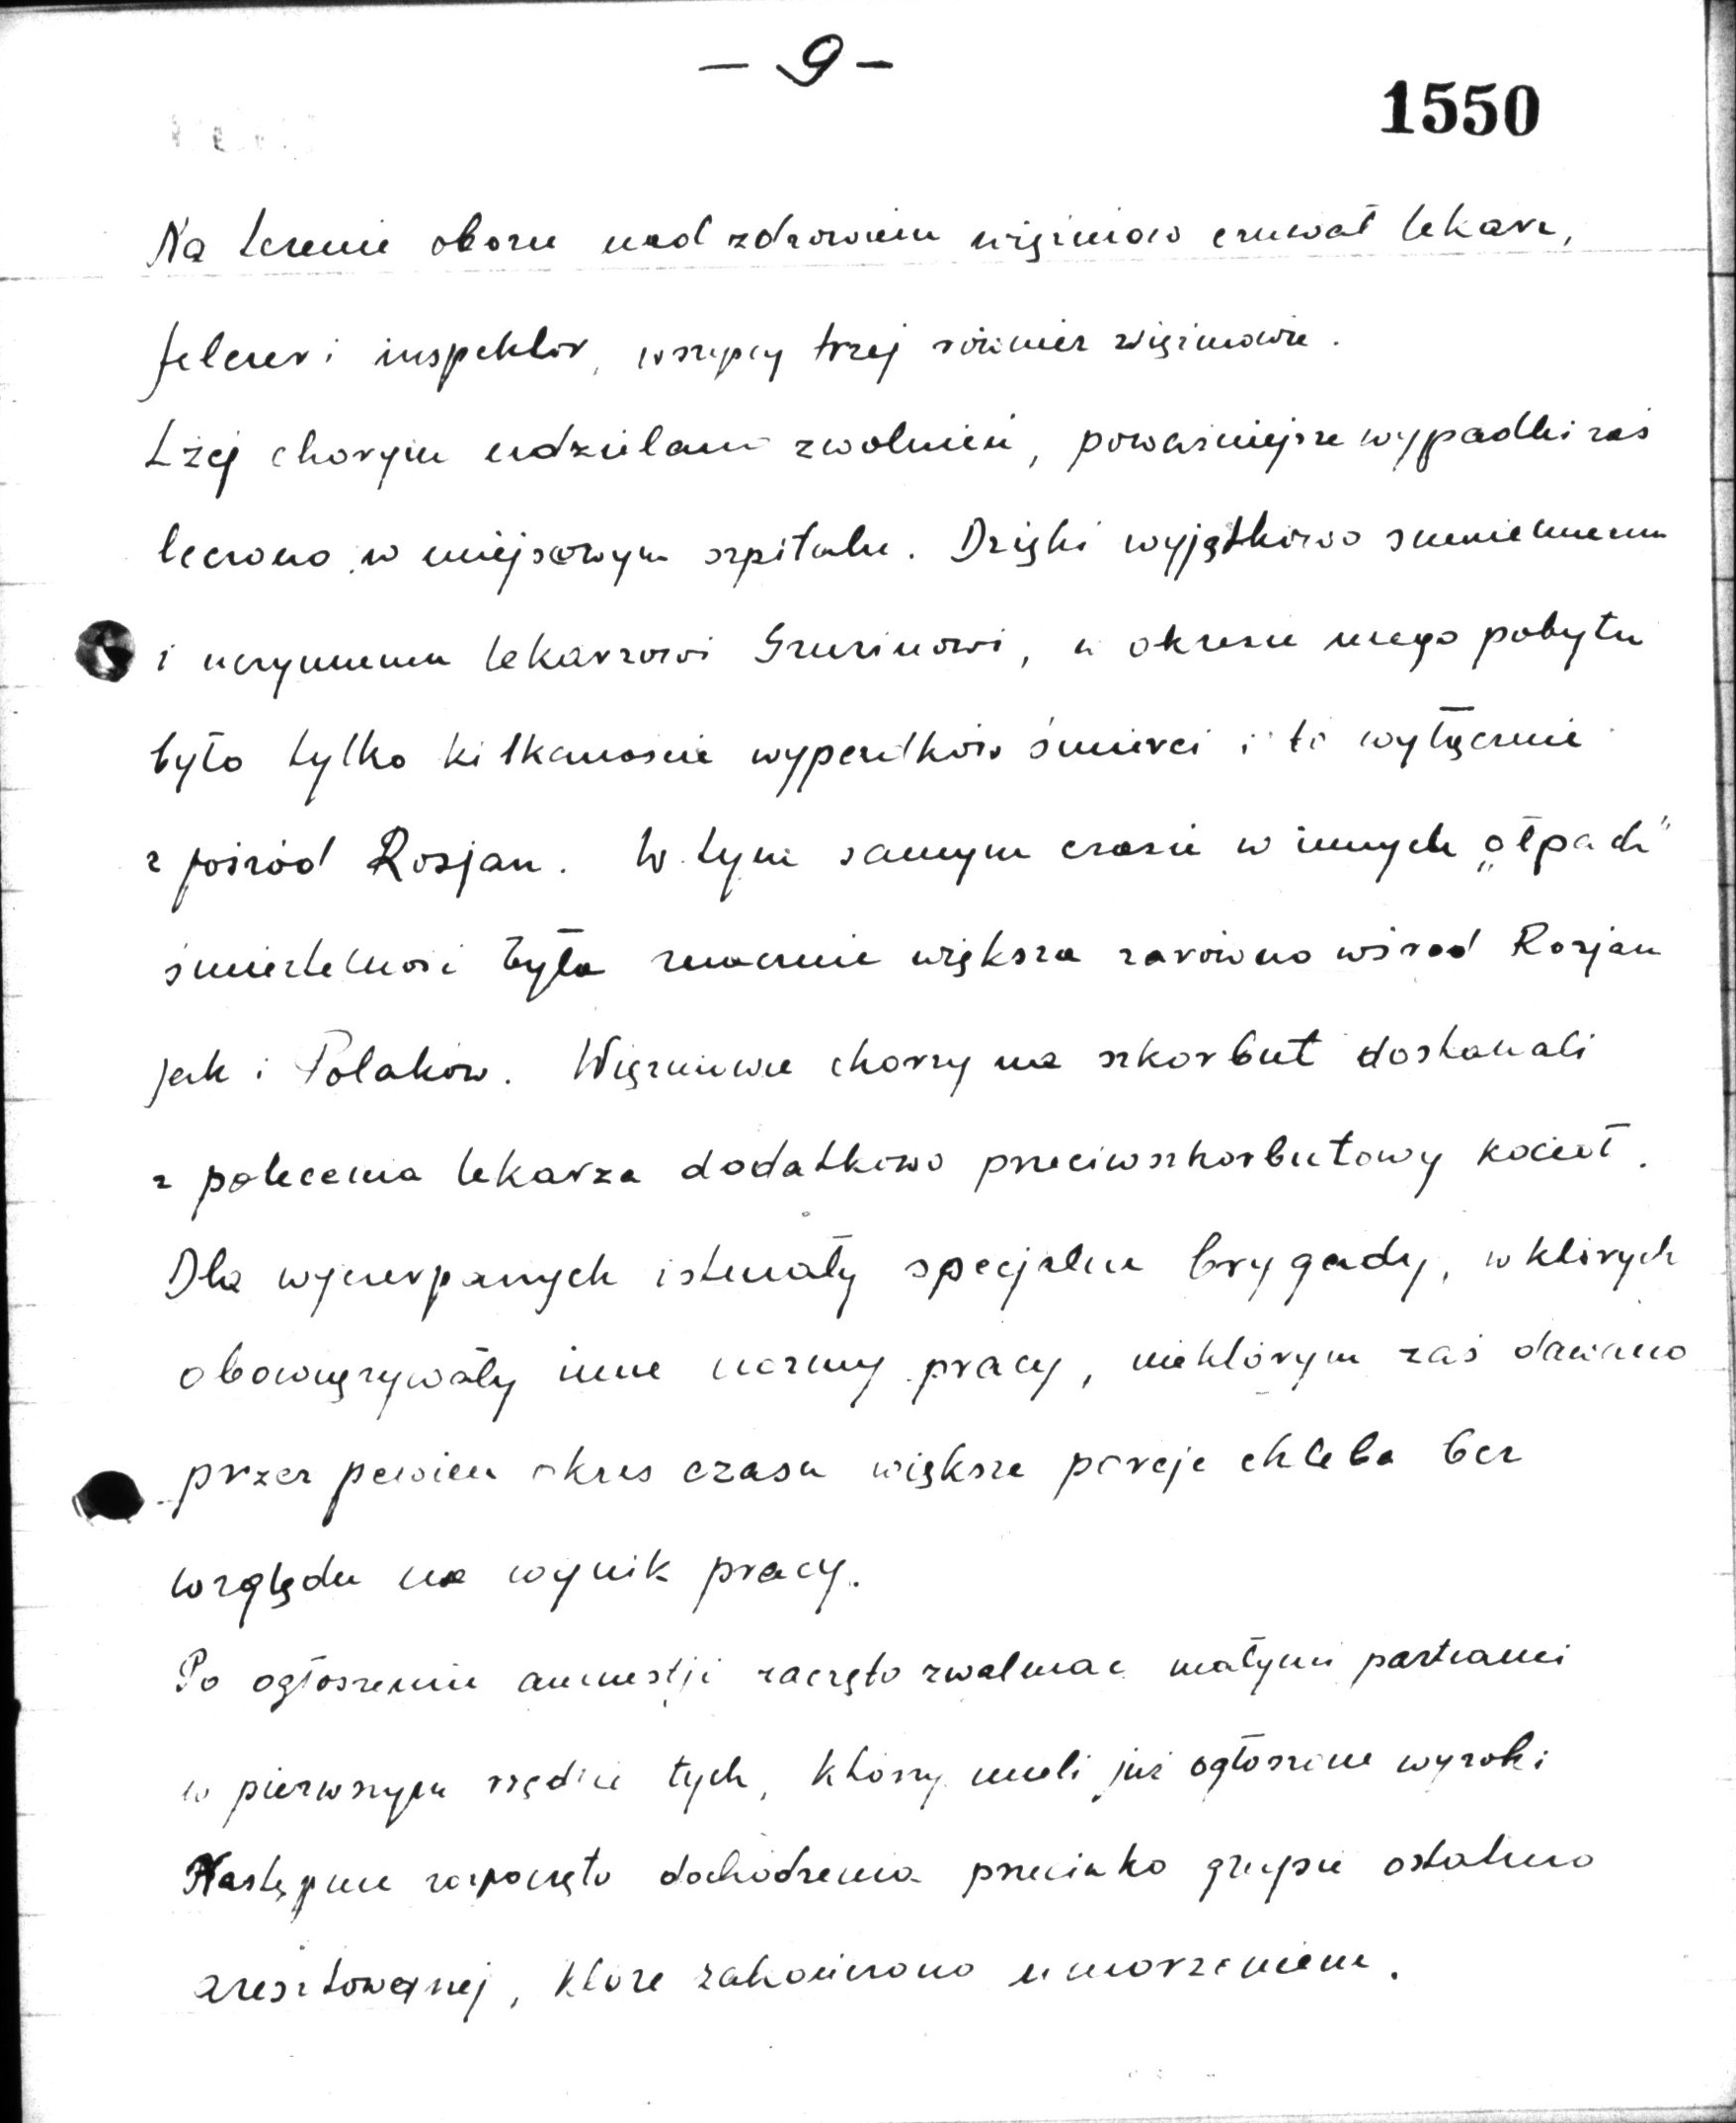 - 9 -
1550
Na terenie obozu nad zdrowiem więźniów czuwał lekarz,
felczer i inspektor, wszyscy trzej również więźniowie.
Lżej chorym udzielano zwolnień, poważniejsze wypadki zaś
leczono w miejscowym szpitalu. Dzięki wyjątkowo sumiennemu
i uczynnemu lekarzowi, w okresie mego pobytu
było tylko kilkanaście wypadków śmierci i to wyłącznie
z pośród Rosjan. W tym samym czasie w innych „ołpach"
śmiertelność była znacznie większa zarówno wśród Rosjan
jak i Polaków. Więźniowie chorzy na szkorbut dostawali
z polecenia lekarza dodatkowo przeciwszkorbutowy kocioł.
Dla wyczerpanych istniały specjalne brygady, w których
obowiązywały inne normy pracy, niektórym zaś dawano
przez pewien okres czasu większe porcje chleba bez
względu na wynik pracy.
Po ogłoszeniu amnestji zaczęto zwalniać małymi partiami
w pierwszym rzędzie tych, którzy mieli już ogłoszone wyroki
Następnie rozpoczęto dochodzenia przeciwko grupie ostatnio
aresztowanej, które zakończono umorzeniem.